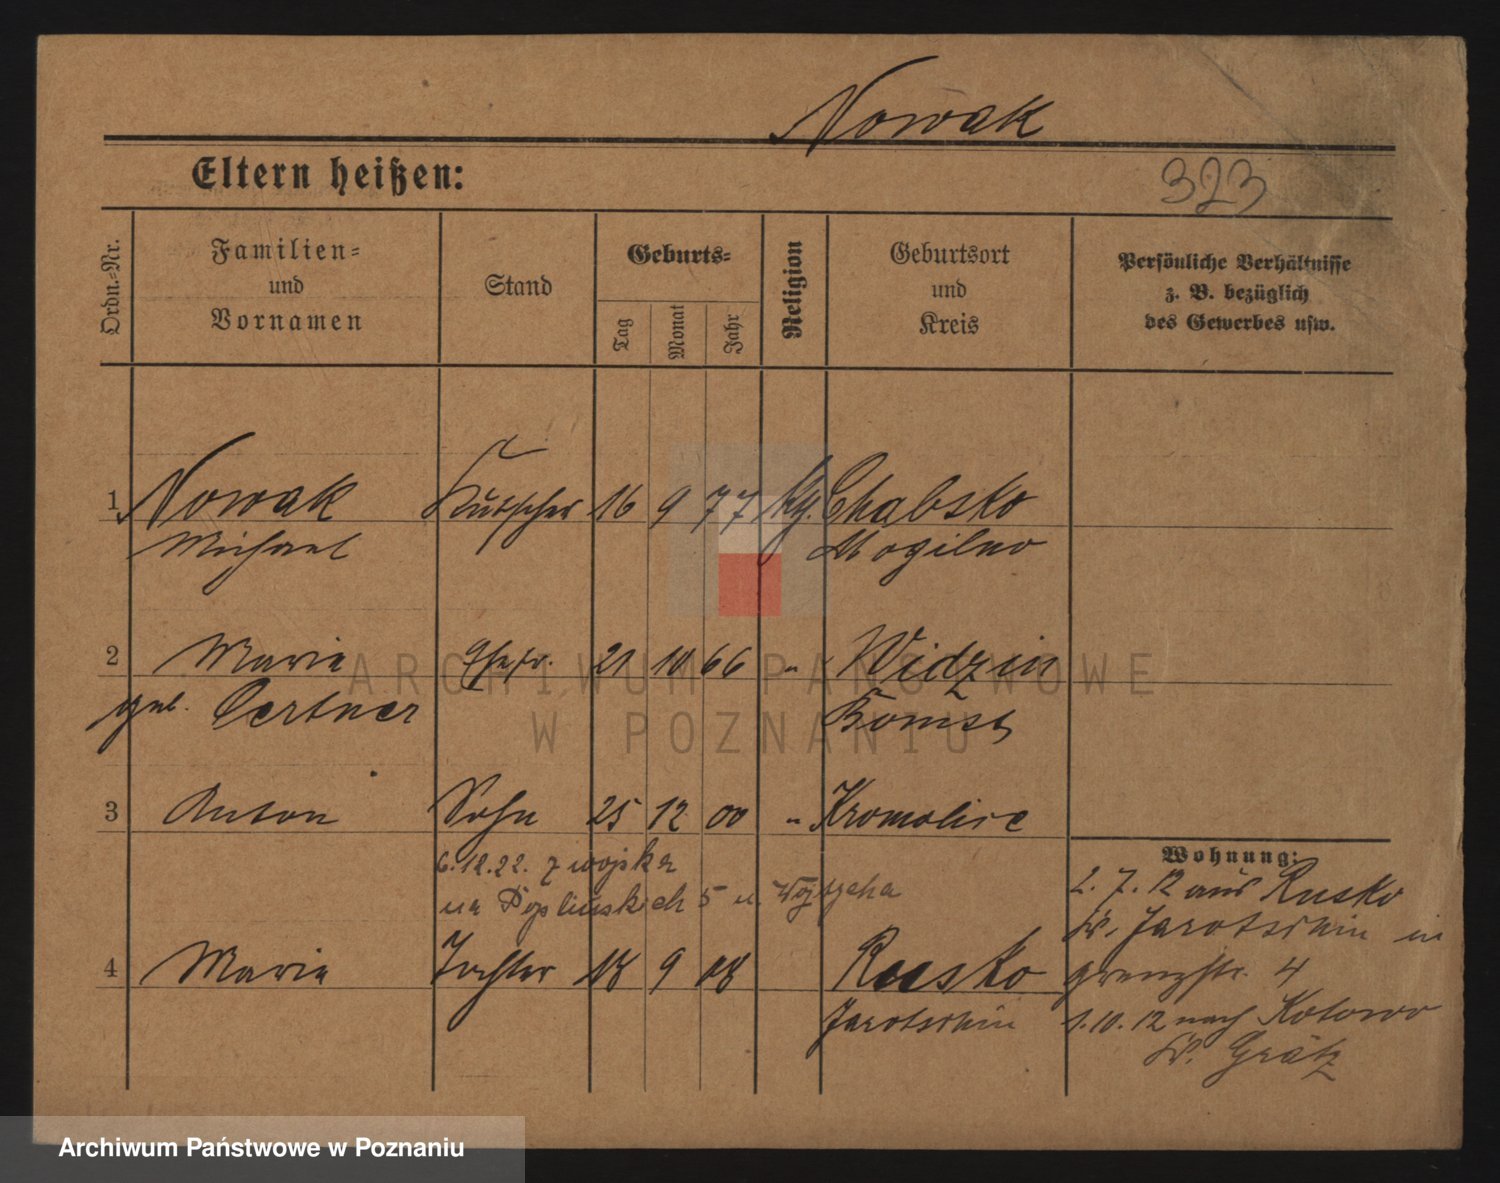 Nowak
Eltern heißen:
323
Ordn.-Nr.
Familien-
und
Vornamen
Stand
Geburts-
Tag
Monat
Jahr
Religion
Geburtsort
und
Kreis
Persönliche Verhältnisse
z. B. bezüglich
des Gewerbes usw.
1 Nowak Kutscher 16 9 77 Chabsko
Michael Mogilno
2 Maria Ehefr. 21 10 66 " Widzin
geb. Oertner Bomst
3 Anton Sohn 25 12 00 " Kromolice
6.12.22. z wojska
na 5 u. Wojtzcha
4 Maria Tochter 18 9 08 Rusko
Jarotschin
Wohnung:
2. 7. 12 aus Rusko
Kr. Jarotschin in
Grenzstr. 4
1. 10. 12 nach Kotowo
Kr. Grätz
ARCHIWUM PAŃSTWOWE
W POZNANIU
Archiwum Państwowe w Poznaniu